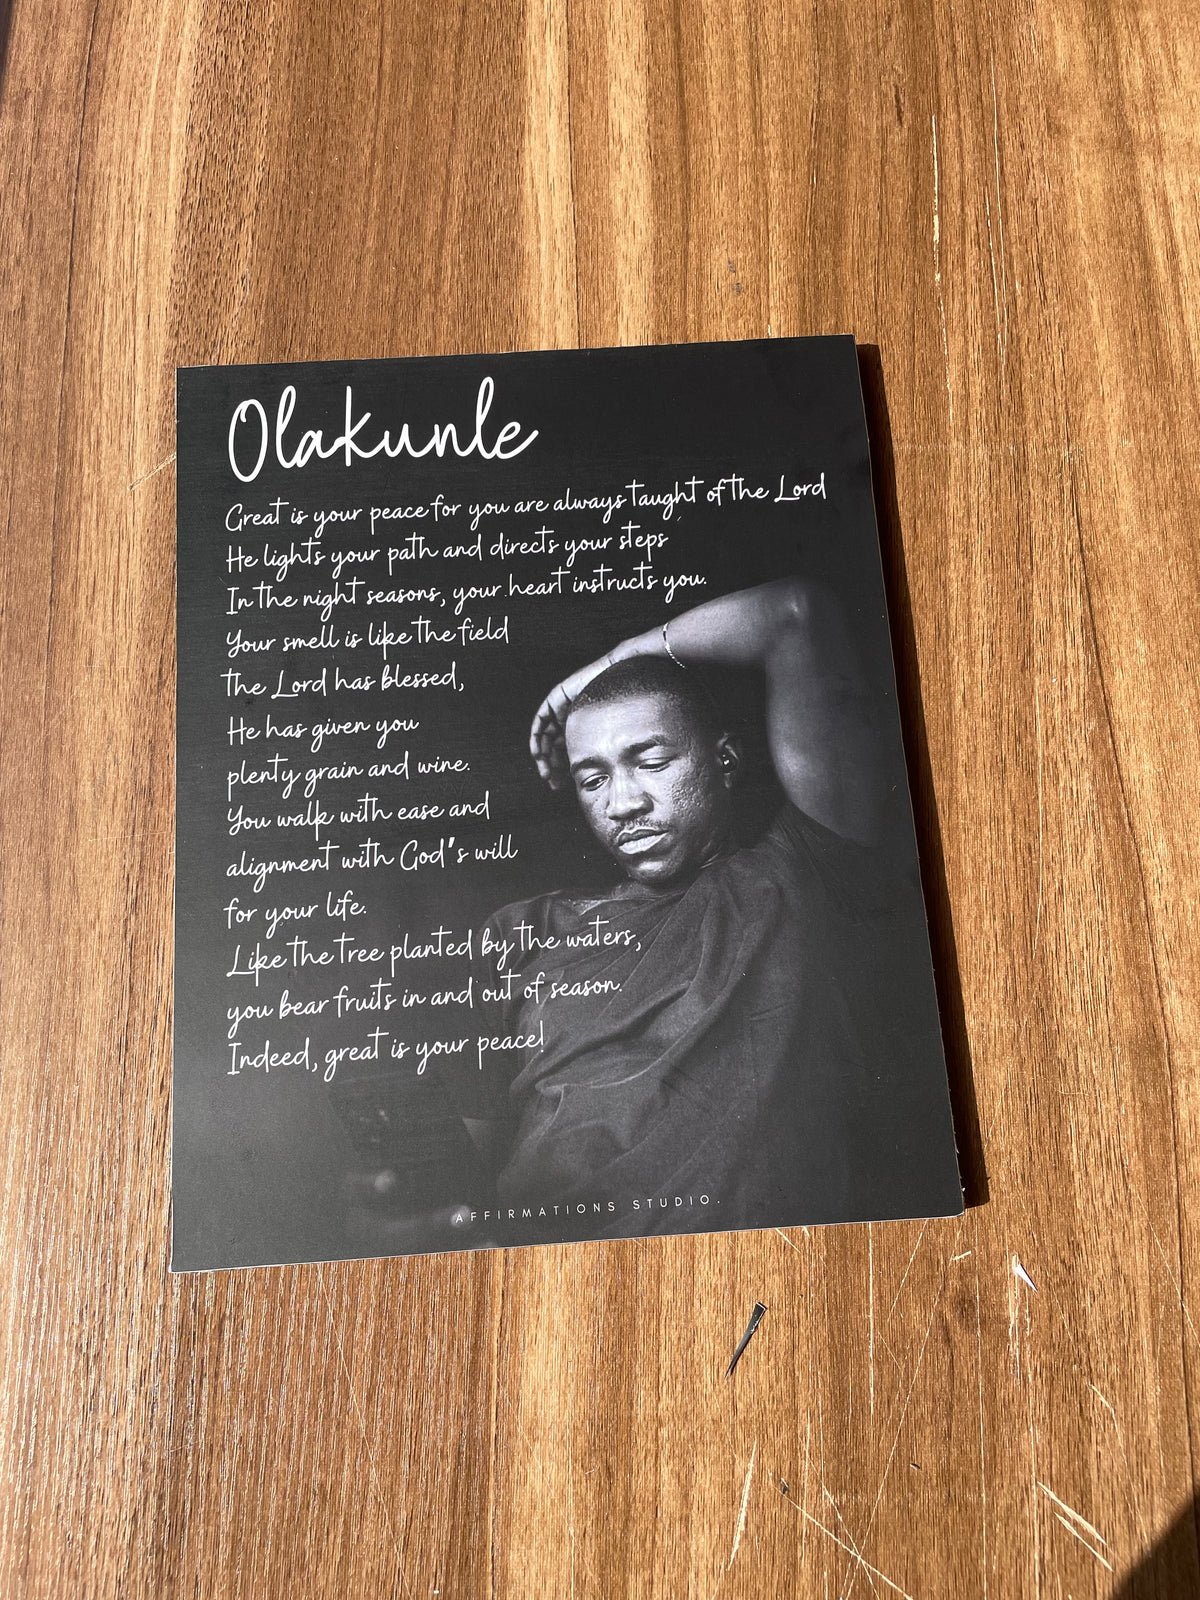 Olakunle
Great is your peace for you are always taught of the Lord
He lights your path and directs your steps
In the night seasons, your heart instructs you.
Your smell is like the field
the Lord has blessed,
He has given you
plenty grain and wine.
You walk with ease and
alignment with God's will
for your life.
Like the tree planted by the waters,
you bear fruits in and out of season.
Indeed, great is your peace!
AFFIRMATIONS STUDIO.